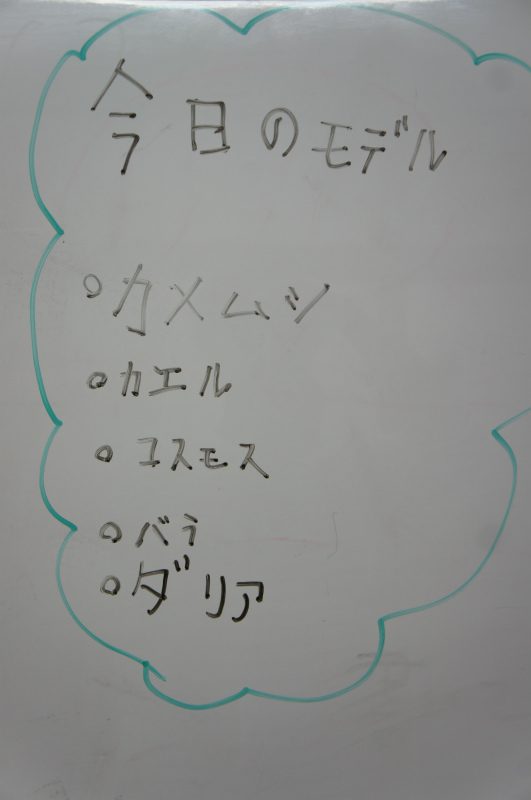 今日のモデル
○カメムツ
○カエル
○コスモス
○バラ
○ダリア